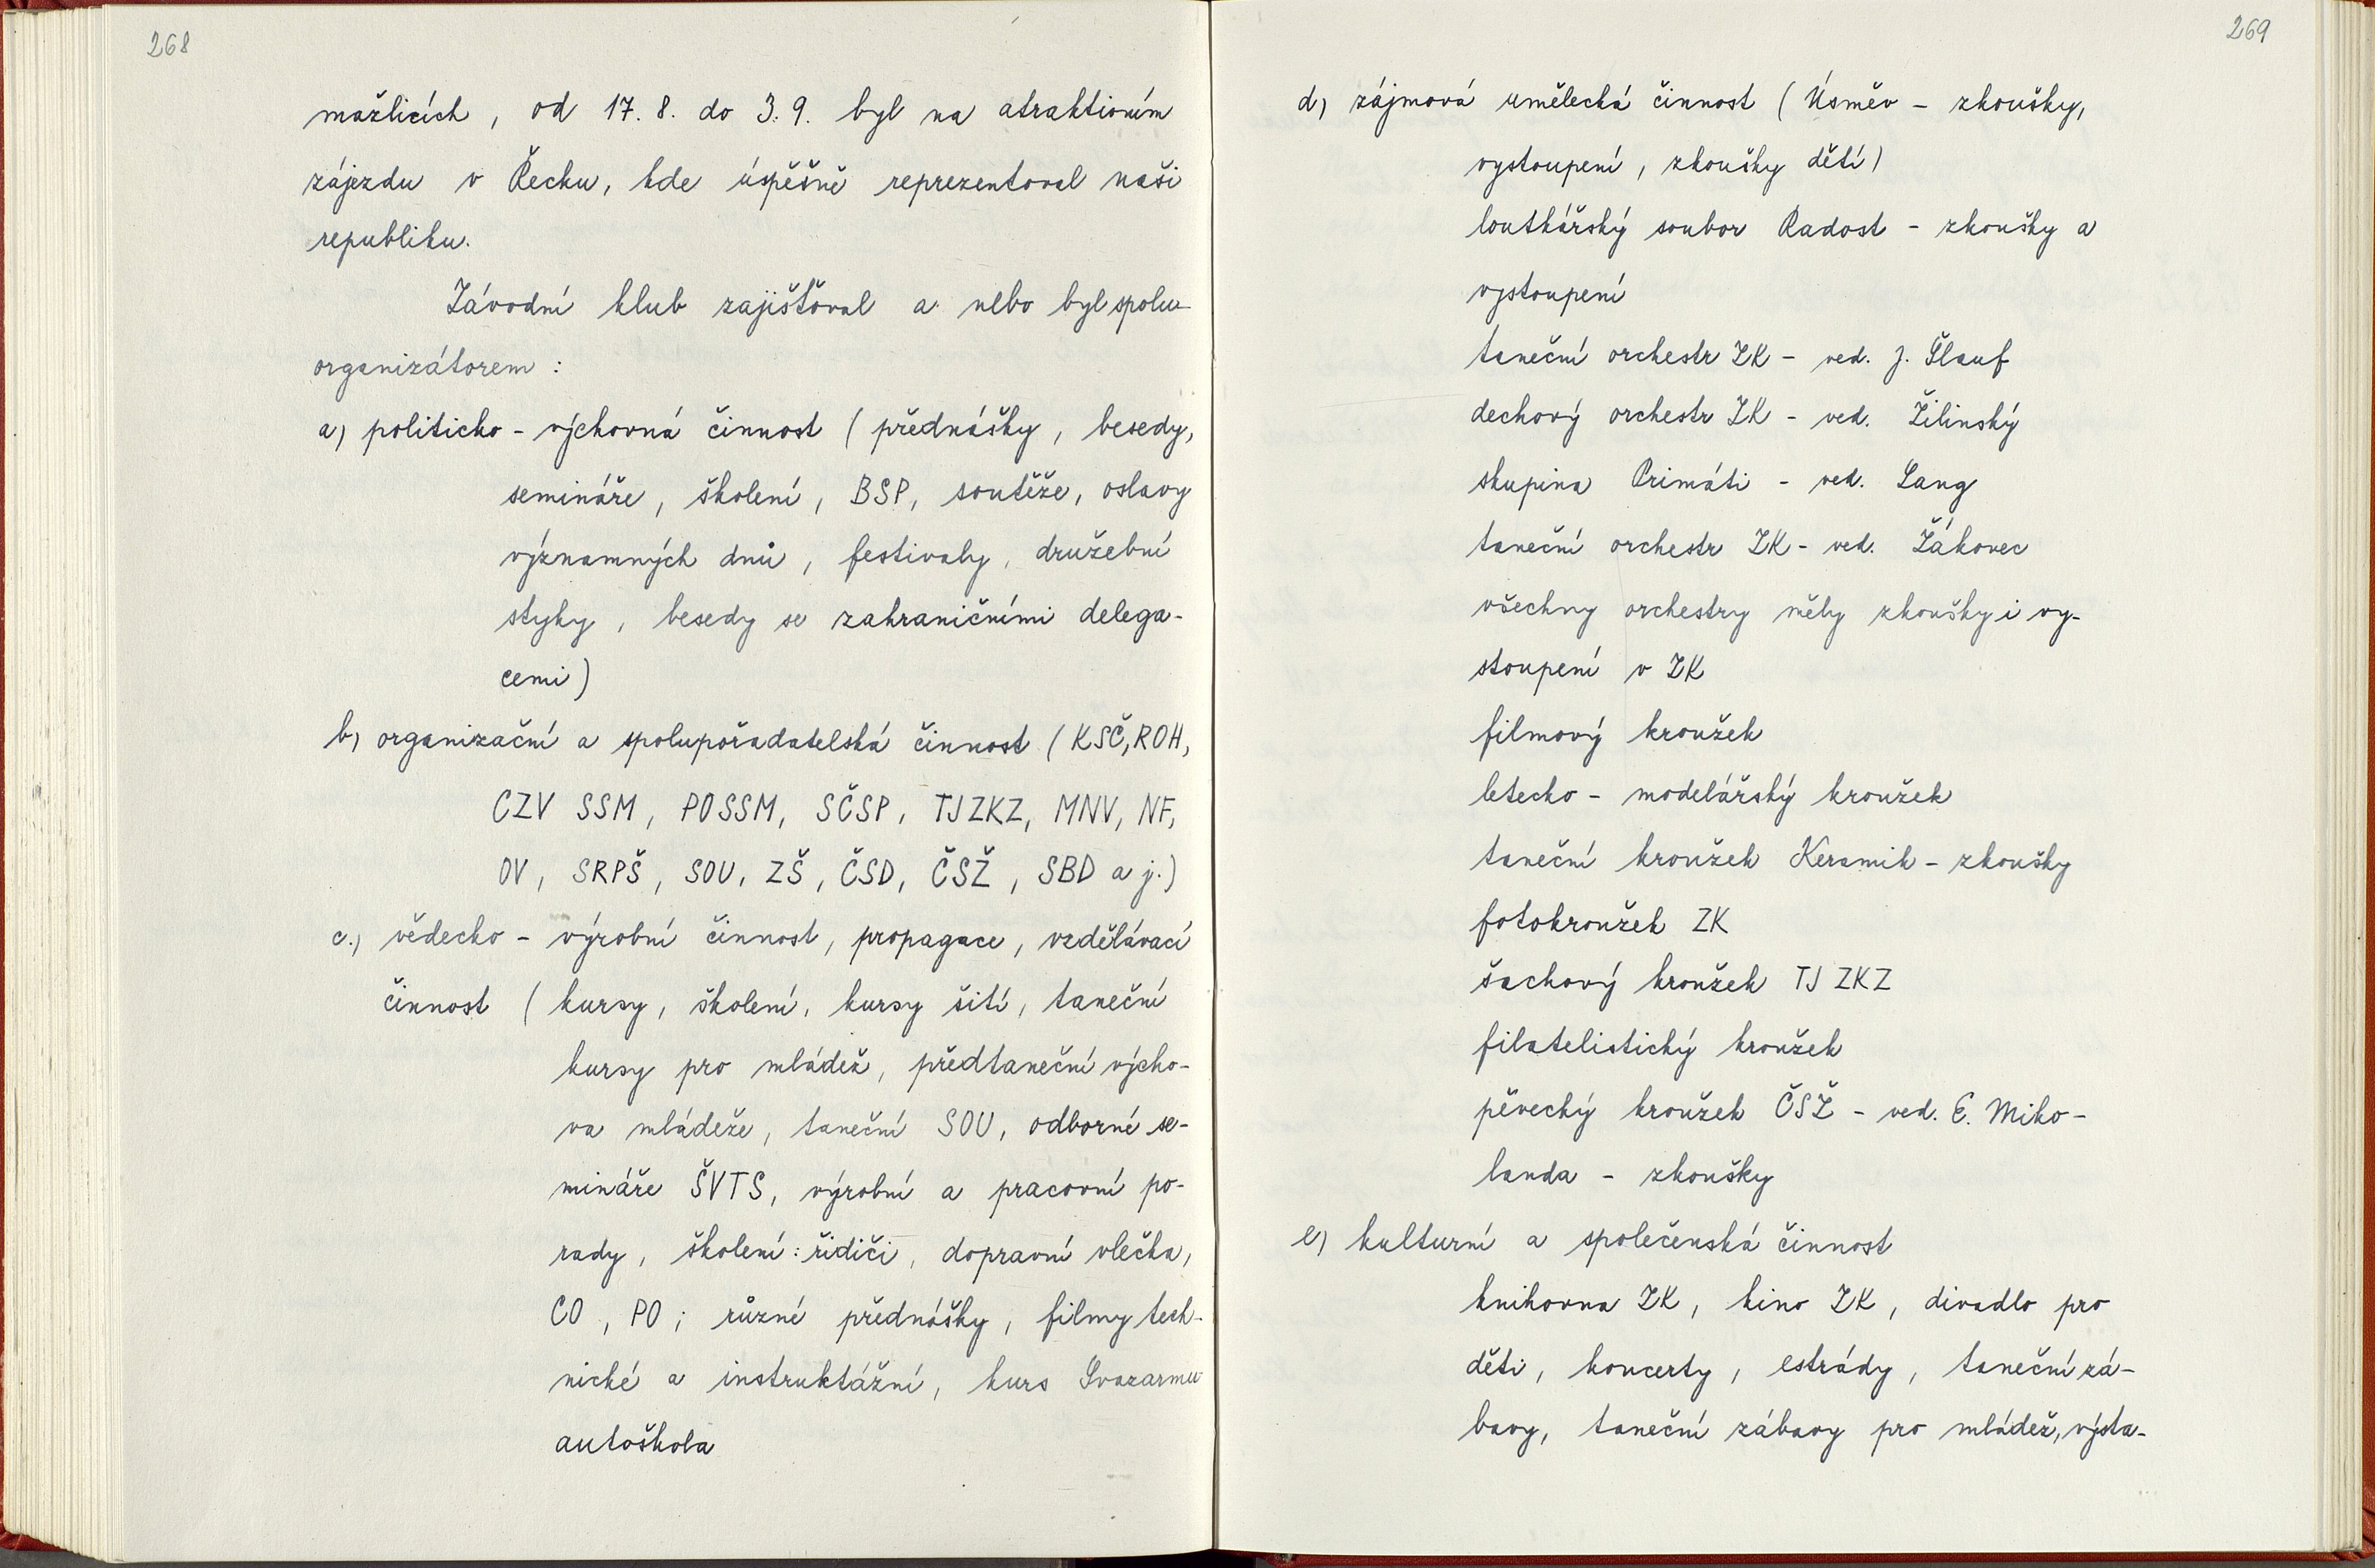 268
mažlicích, od 17. 8. do 3. 9. byl na atraktivním
zájezdu v Řecku, kde úspěšně reprezentoval naši
republiku.
Závodní klub zajišťoval a nebo byl spolu-
organizátorem :
a) politicko - výchovná činnost ( přednášky, besedy,
semináře, školení, BSP, soutěže, oslavy
významných dnů, festivaly, družební
styky, besedy se zahraničními delega-
cemi )
b) organizační a spolupořadatelská činnost ( KSČ, ROH,
CZV SSM, POSSM, SČSP, TJ ZKZ, MNV, NF,
OV, SRPŠ, SOU, ZŠ, ČSD, ČSŽ, SBD a j. )
c.) vědecko - výrobní činnost, propagace, vzdělávací
činnost ( kursy, školení, kursy šití, taneční
kursy pro mládež, předtaneční výcho-
va mládeže, taneční SOU, odborné se-
mináře ŠVTS, výrobní a pracovní po-
rady, školení : řidiči, dopravní vlečka,
CO, PO ; různé přednášky, filmy tech-
nické a instruktážní, kurs Svazarmu
autoškola
269
d) zájmová umělecká činnost ( Úsměv - zkoušky,
vystoupení, zkoušky dětí )
loutkářský soubor Radost - zkoušky a
vystoupení
taneční orchestr ZK - ved. J. Šlauf
dechový orchestr ZK - ved. Žilinský
skupina Primáti - ved. Lang
taneční orchestr ZK - ved. Žákovec
všechny orchestry měly zkoušky i vy-
stoupení v ZK
filmový kroužek
letecko - modelářský kroužek
taneční kroužek Keramik - zkoušky
fotokroužek ZK
šachový kroužek TJ ZKZ
filatelistický kroužek
pěvecký kroužek ČSŽ - ved. E. Miko-
landa - zkoušky
e) kulturní a společenská činnost
knihovna ZK, kino ZK, divadlo pro
děti, koncerty, estrády, taneční zá-
bavy, taneční zábavy pro mládež, výsta-